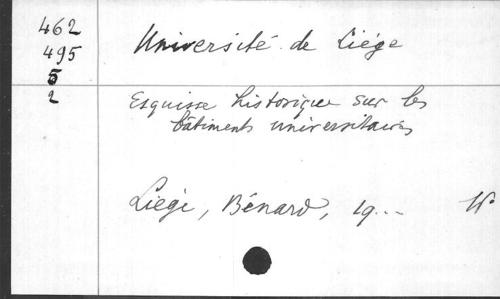 462
495
5
2
Université de Liége
Esquisse historique sur les
bâtiments universitaires
Liége, Bénard, 19...